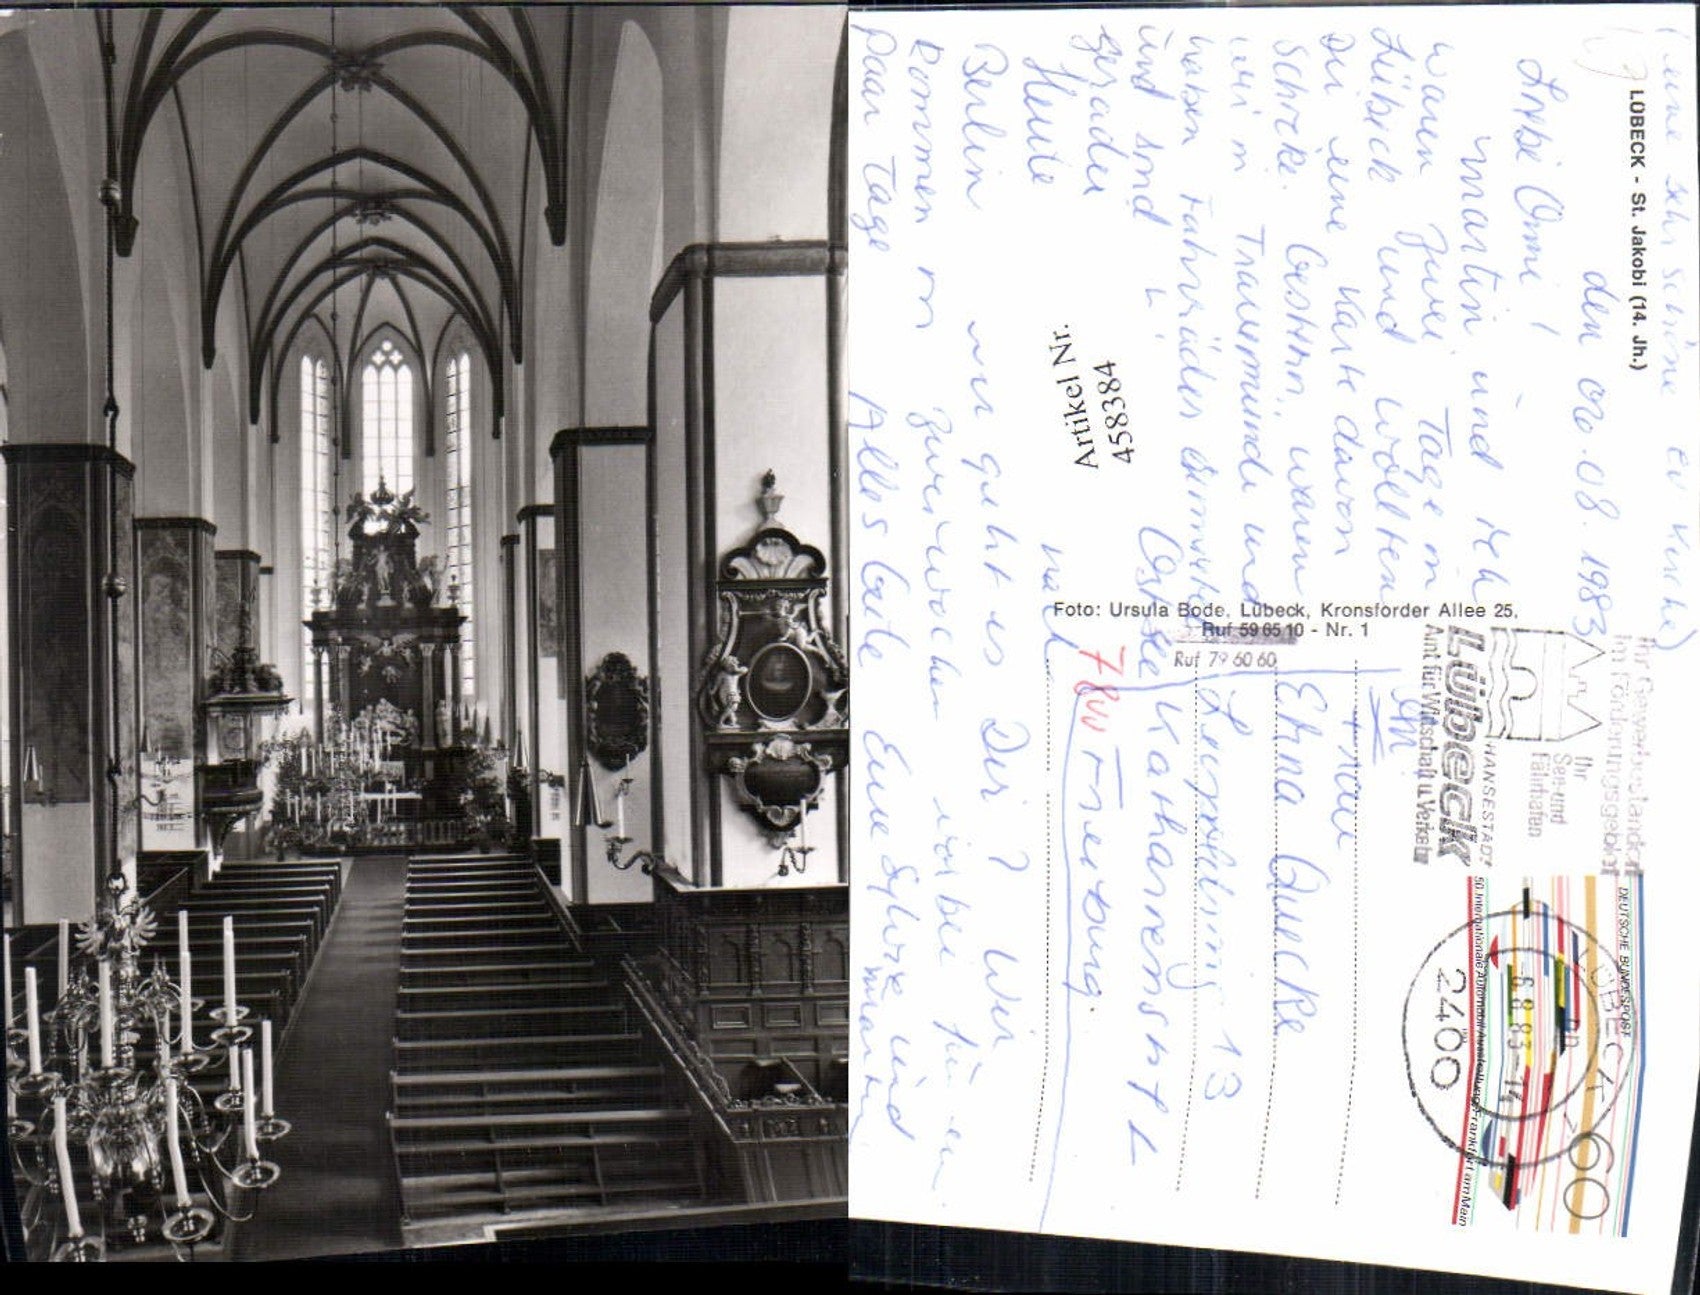 (eine sehr schöne ev Kirche)
LÜBECK - St. Jakobi (14. Jh.)
den 06.08.1983
Liebe Omi!
Martin und ich
waren zwei Tage in
Lübeck und wollten
Dir eine Karte davon
schicke. Gestern waren
wir in Travemünde und
haben Fahrräder
und sind
gerade
Ostsee
Heute
nach
Berlin
wie geht es Dir? Wir
kommen in zwei Wochen vorbei für ein
paar Tage Alles Gute Eure Sylvie und
Martin
Artikel Nr.
458384
Foto: Ursula Bode, Lübeck, Kronsforder Allee 25,
Ruf 59 65 10 - Nr. 1
Ruf 79 60 60
An
Frau
Edna Quecke
13
Katharinenstift
7800 Freiburg.
Ihr Gewerbestandort
im Förderungsgebiet
Ihr
See- und
Fährhafen
HANSESTADT
Lübeck
Amt für Wirtschaft u. Verkehr
DEUTSCHE BUNDESPOST
60
50. Internationale Automobil-Ausstellung Frankfurt am Main
LÜBECK
-6.8.83-14
2400